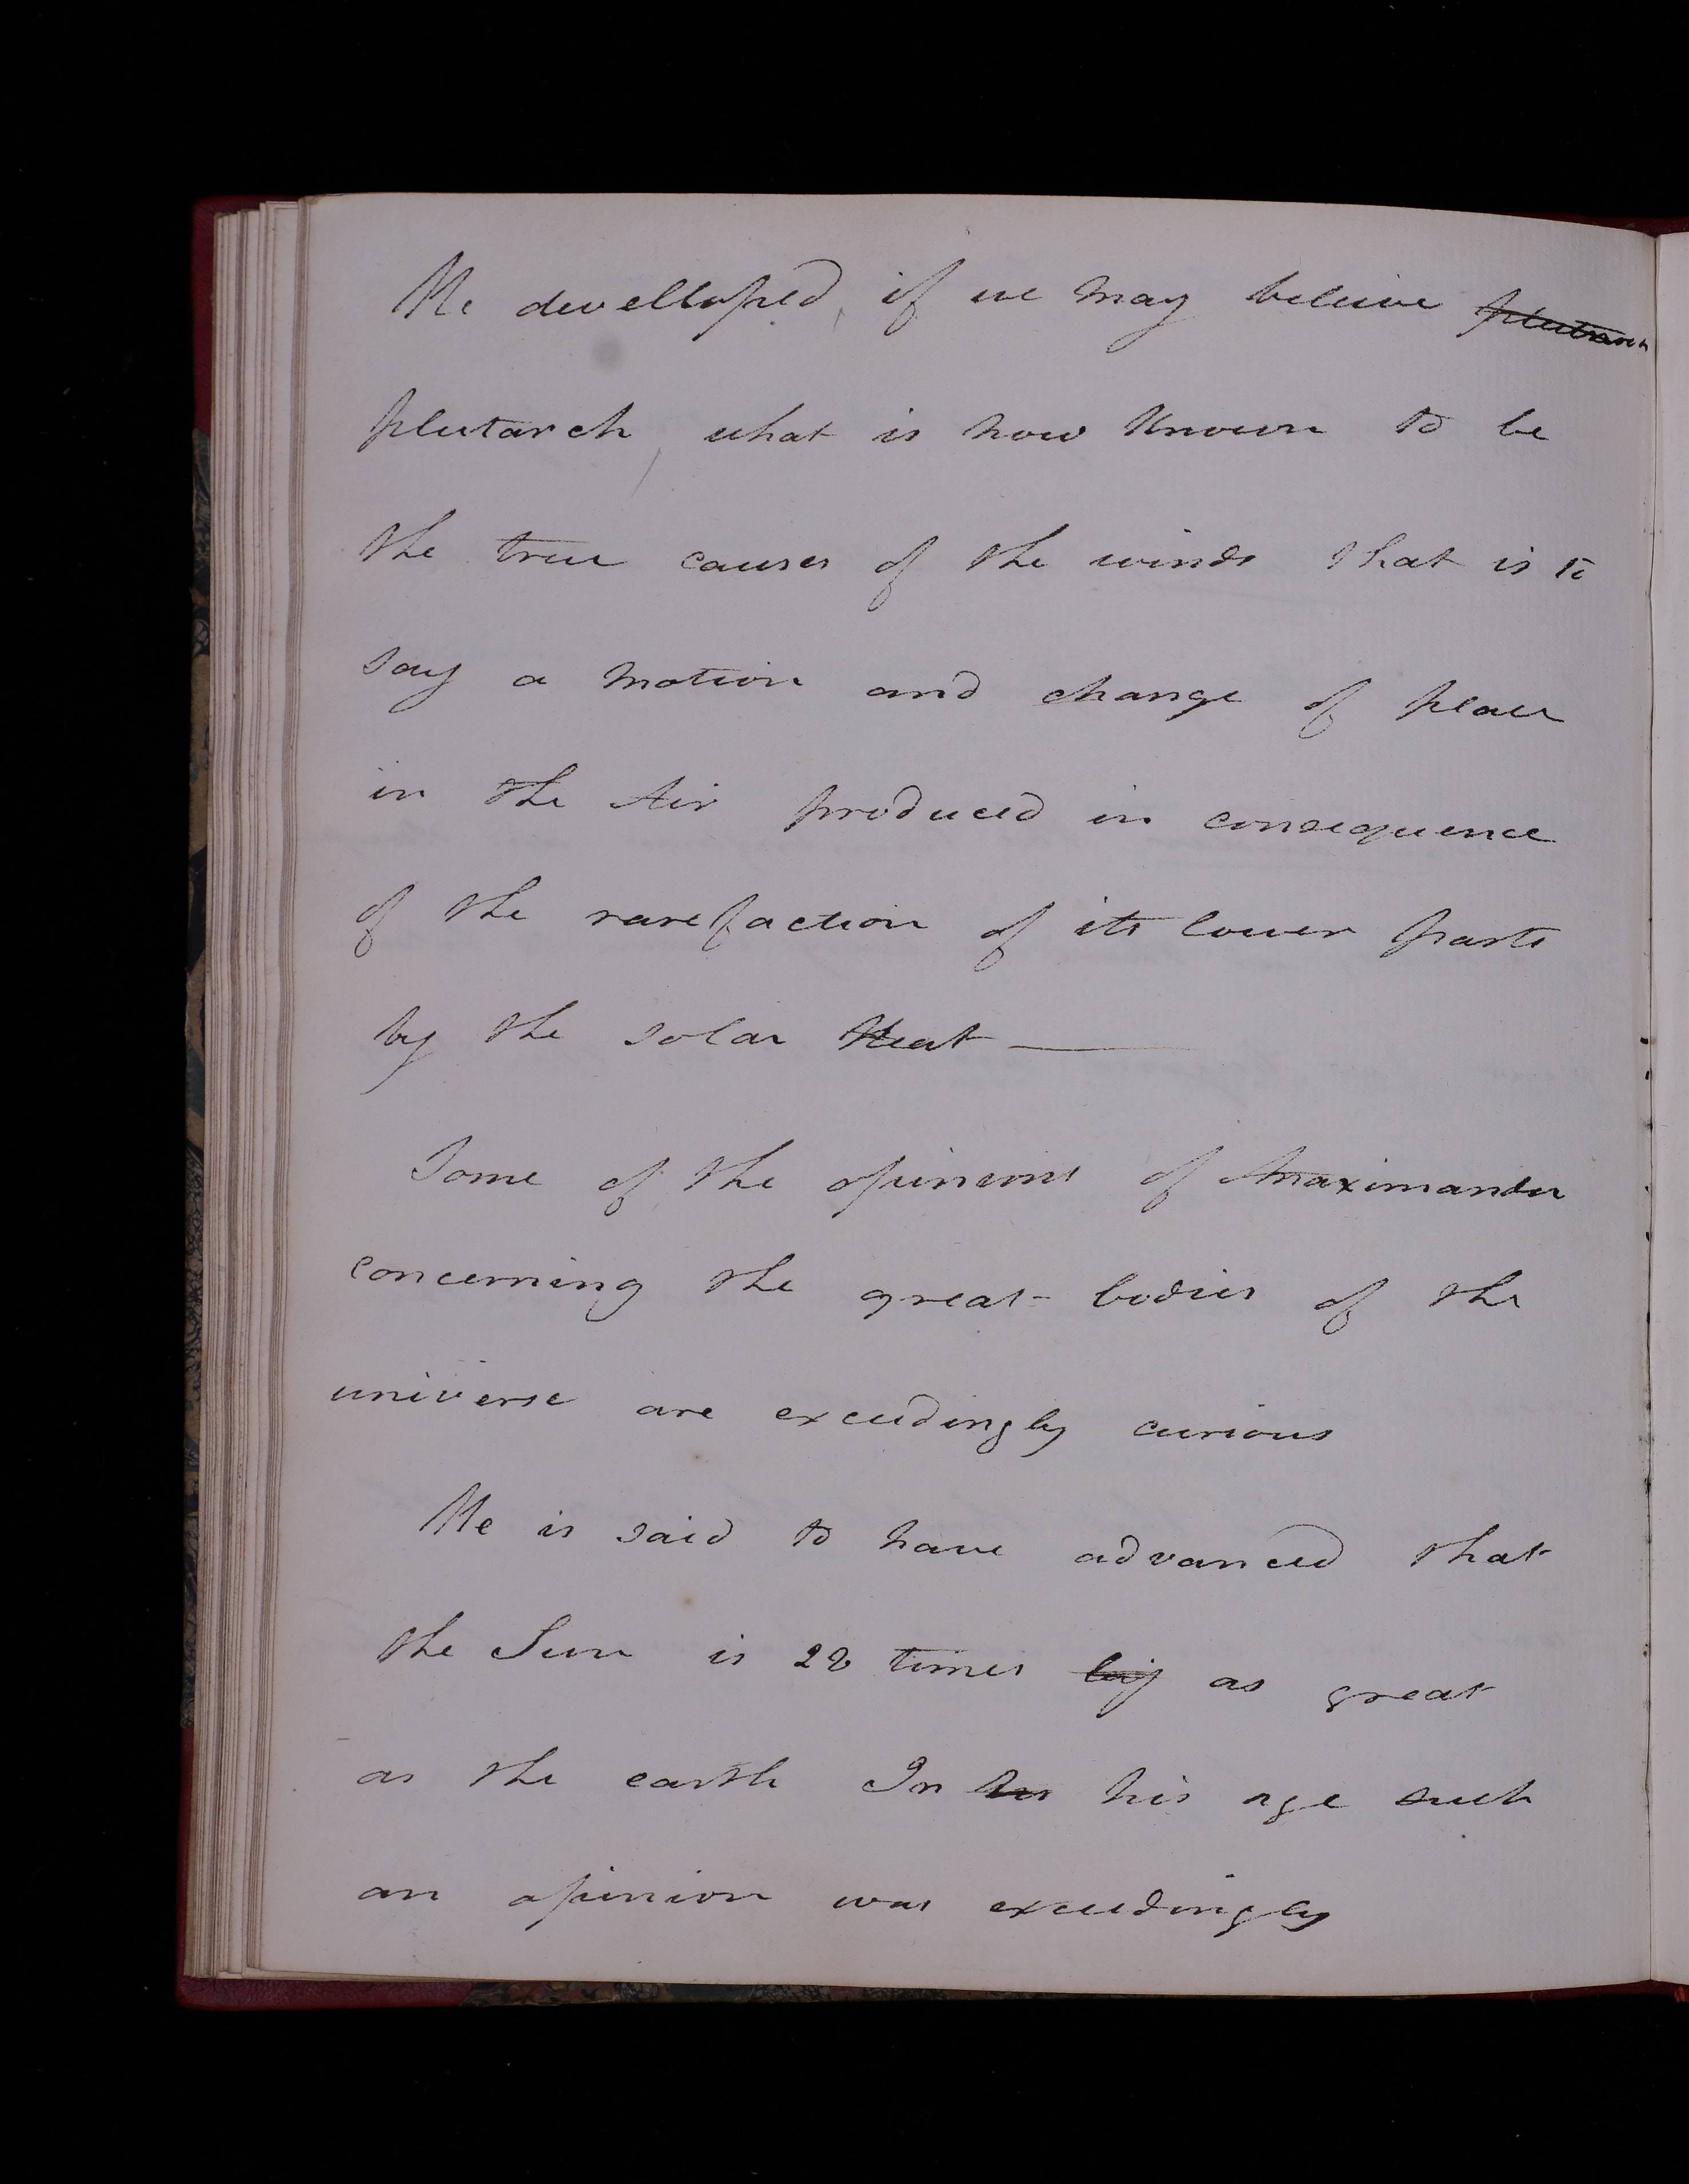 He develloped, if we may believe plutarch
plutarch, what is now known to be
the true causes of the winds that is to
say a motion and change of place
in the Air produced in consequence
of the rarefaction of its lower parts
by the solar Heat —
Some of the opinions of Anaximander
concerning the great bodies of the
universe are exceedingly curious
He is said to have advanced that
the Sun is 28 times big as great
as the earth In his age such
an opinion was exceedingly